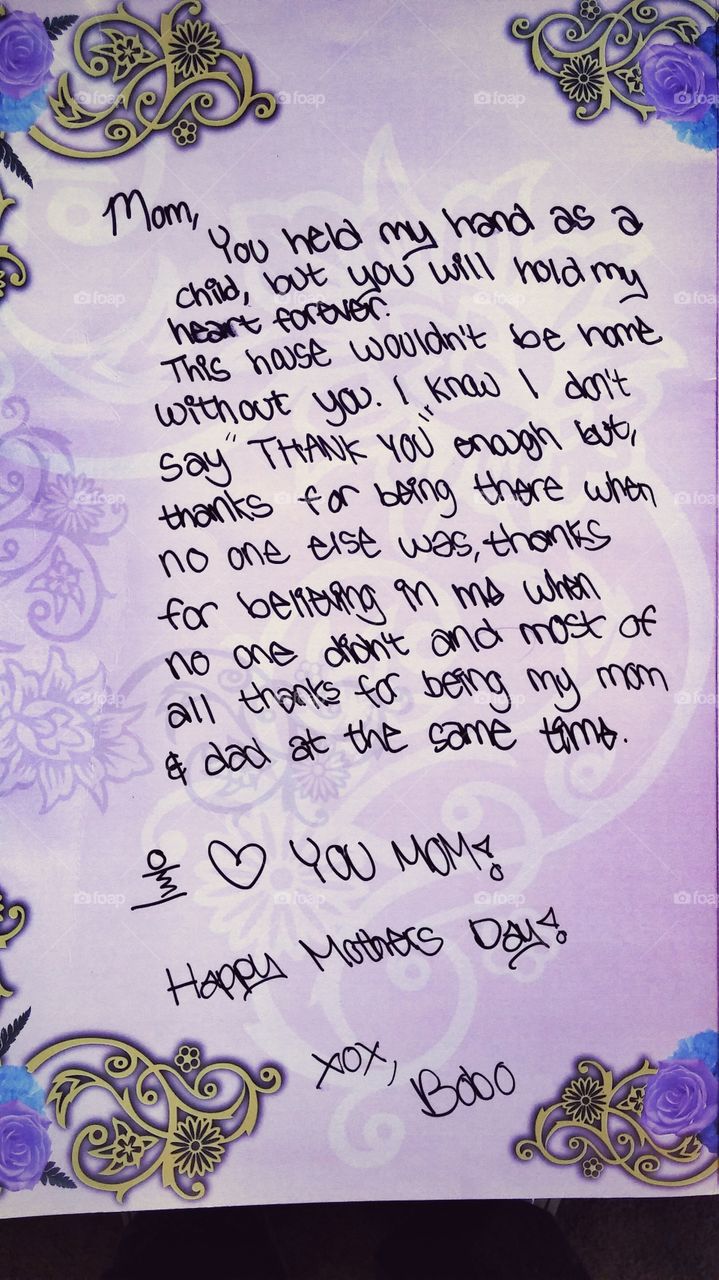 Mom,
You held my hand as a
child, but you will hold my
heart forever.
This house wouldn't be home
without you. I know I don't
say "THANK YOU" enough but,
thanks for being there when
no one else was, thanks
for believing in me when
no one didn't and most of
all thanks for being my mom
& dad at the same time.
I ♡ YOU MOM!
Happy Mothers Day!
xox,
Bobo
foap